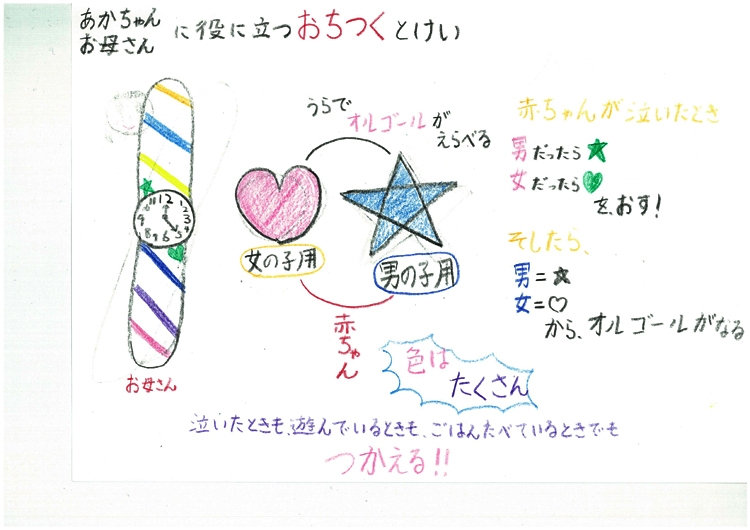 あかちゃん
お母さん に役に立つおちつくとけい
うらで
オルゴールが
えらべる
赤ちゃんが泣いたとき
男だったら★
女だったら♥
を、おす！
そしたら、
男＝★
女＝♡
から、オルゴールがなる
11 12 1
10 2
9 3
8 4
7 6 5
女の子用
男の子用
赤ちゃん
お母さん
色は
たくさん
泣いたときも、遊んでいるときも、ごはんたべているときでも
つかえる!!